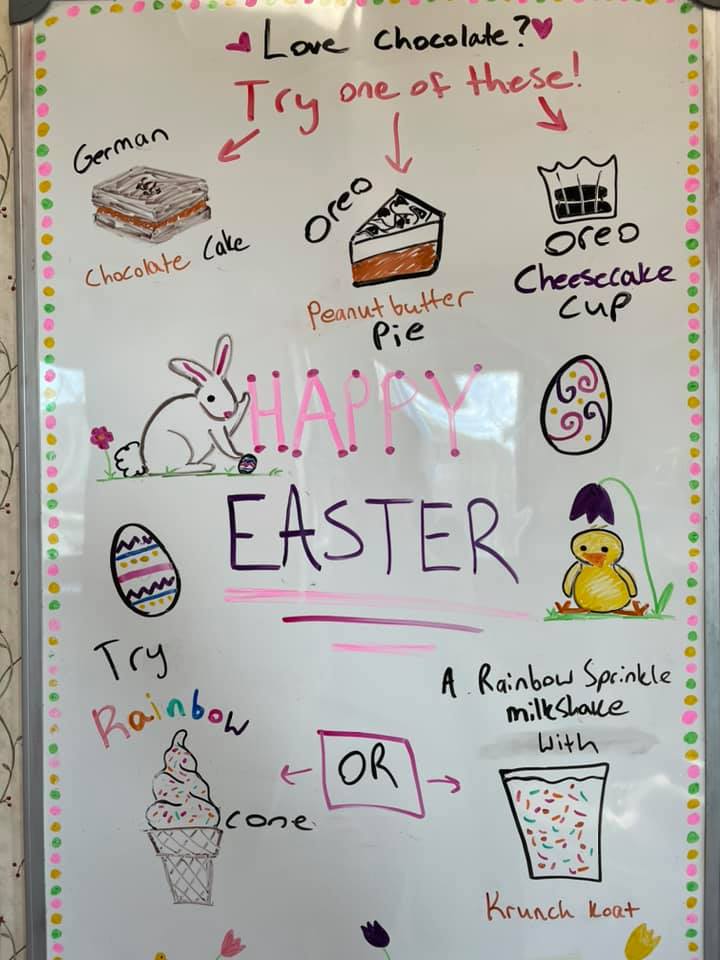 Love chocolate?
Try one of these!
German
Chocolate Cake
Oreo
Peanut butter
Pie
Oreo
Cheesecake
Cup
HAPPY
EASTER
Try
Rainbow
cone
OR
A Rainbow Sprinkle
milkshake
With
Krunch Koat